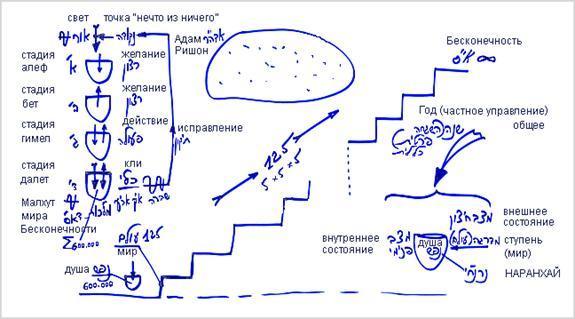 свет точка "нечто из ничего"
אור נקודה
Адам Ришон
стадия алеф
א'
желание
רצון
стадия бет
ב'
желание
רצון
стадия гимел
ג'
действие
פעולה
стадия далет
ד'
кли
כלי
שבירה
исправление
תיקון
Малхут мира Бесконечности
Σ600.000
125 עולם
мир
душа
נפש
600.000
125
5 × 5 × 5
Бесконечность
∞ א"ס
Год (частное управление)
общее
внешнее состояние
מצב חיצון
внутреннее состояние
מצב פנימי
душа
נפש
ступень (мир)
НАРАНХАЙ
נרנח"י